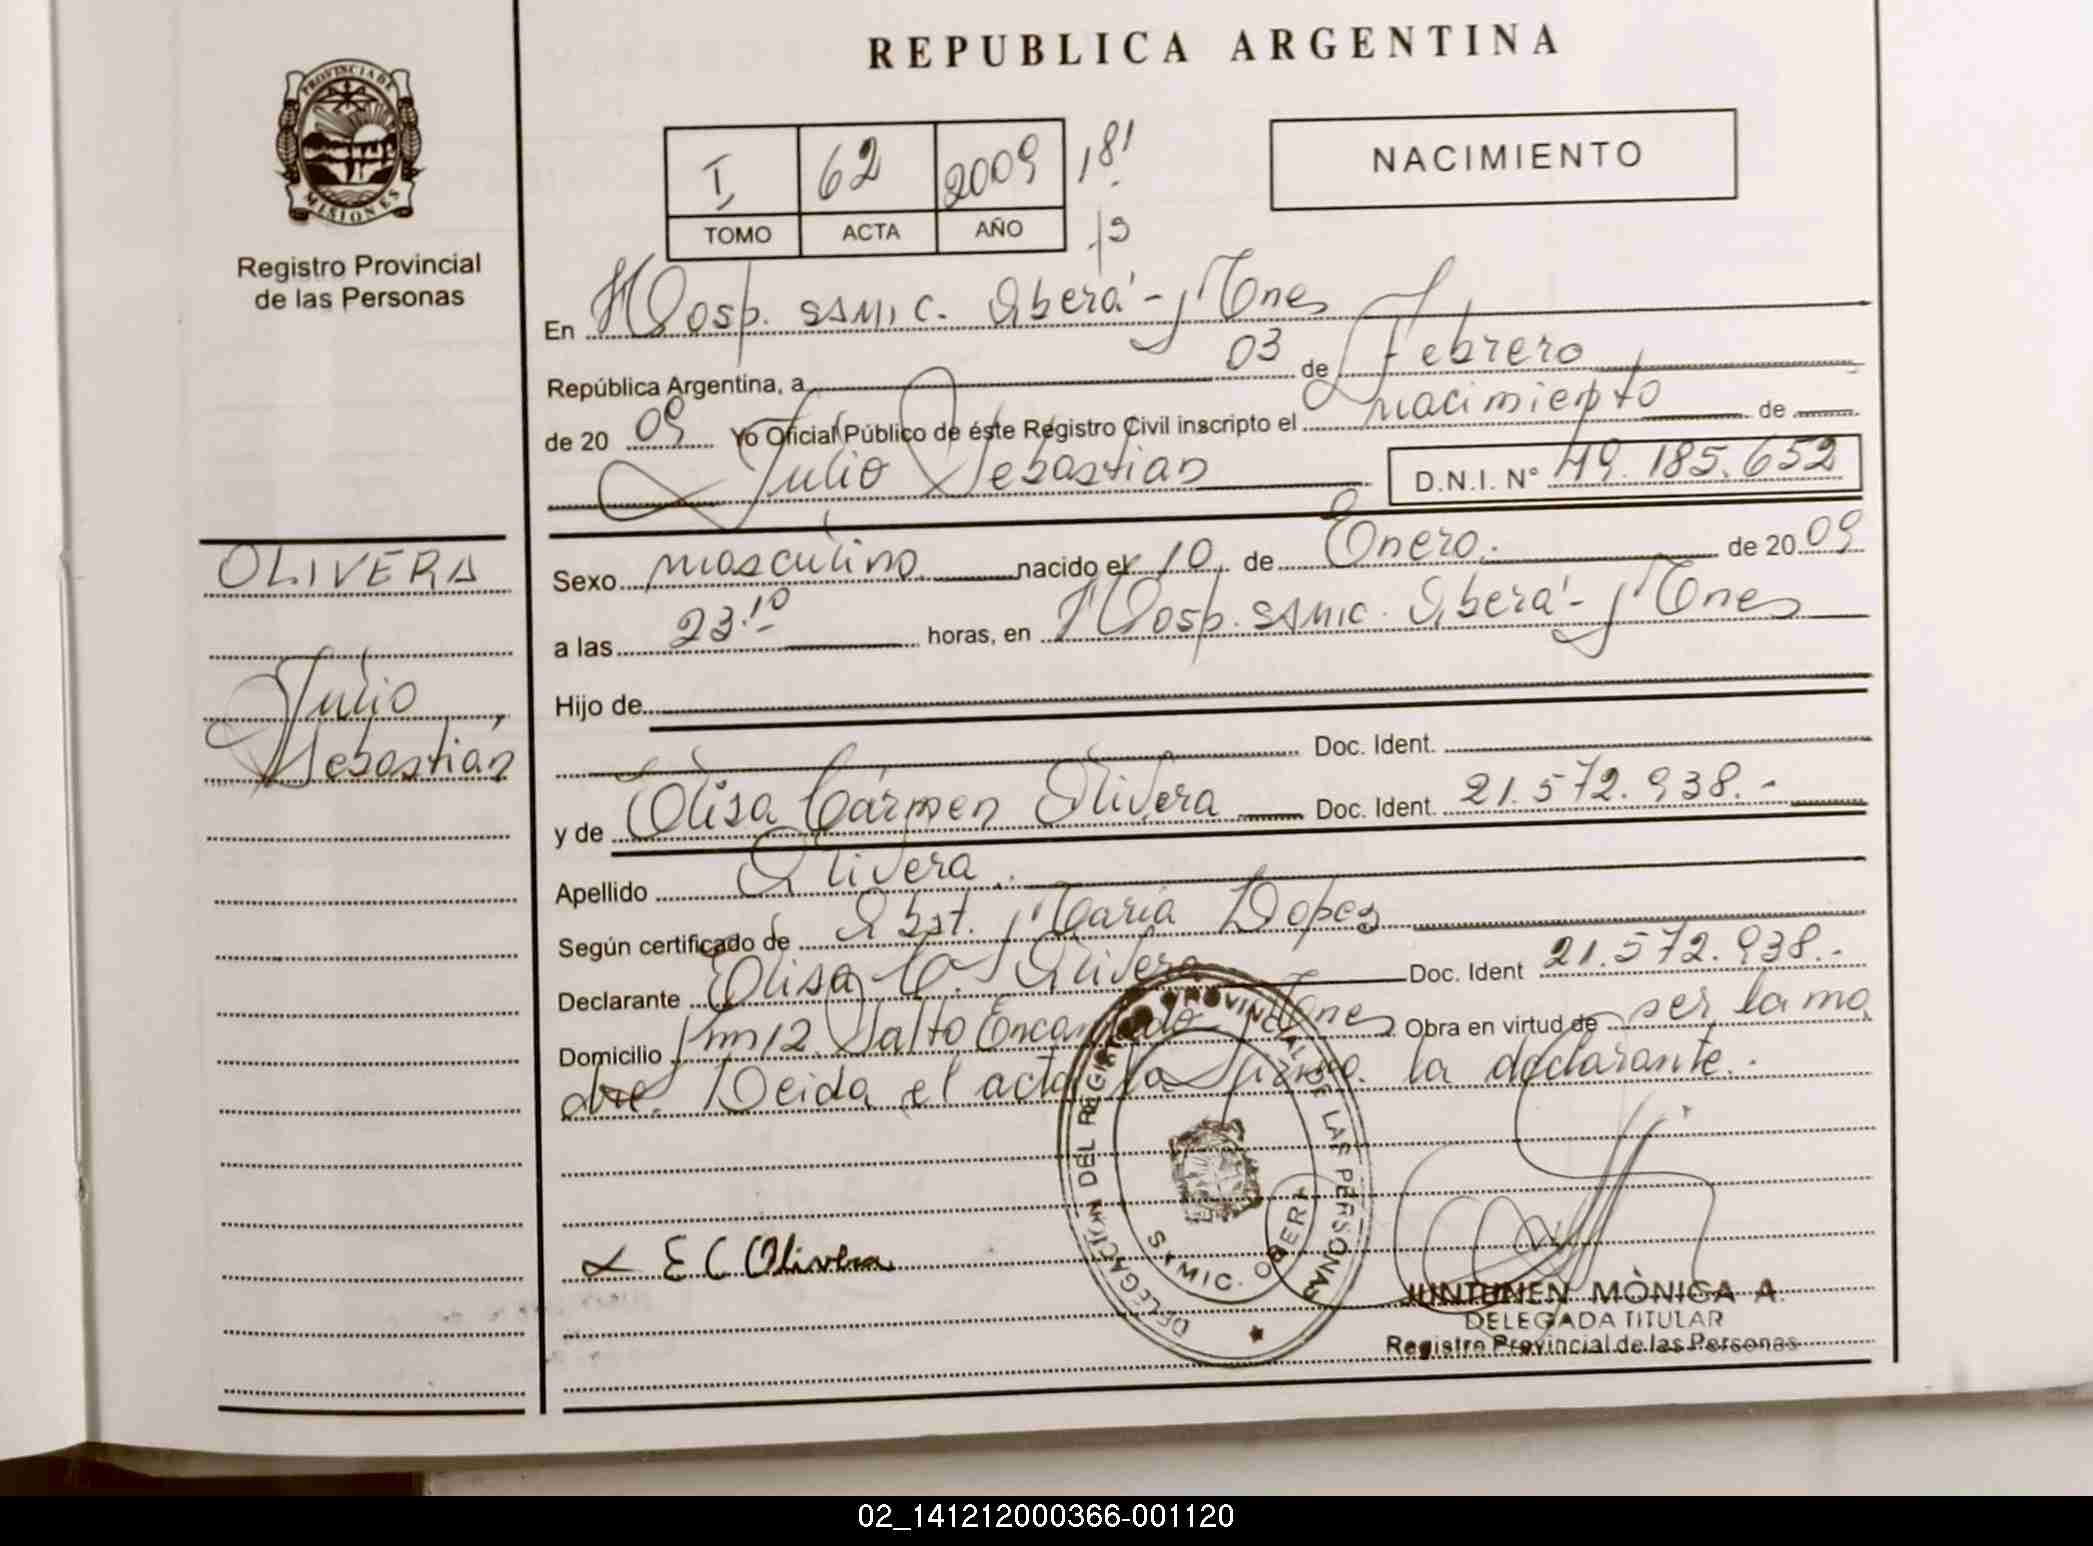 REPUBLICA ARGENTINA
PROVINCIA DE
MISIONES
Registro Provincial
de las Personas
I 62 2009 181
TOMO ACTA AÑO
NACIMIENTO
En Hosp. SAMIC. Oberá - Mnes
República Argentina, a 03 de Febrero
de 20 09 Yo Oficial Público de éste Registro Civil inscripto el nacimiento de
Julio Sebastian D.N.I. N° 49.185.652
OLIVERA
Julio
Sebastian
Sexo masculino nacido el 10 de Enero. de 20 09
a las 23.10 horas, en Hosp. SAMIC. Oberá - Mnes
Hijo de
Doc. Ident.
y de Elisa Carmen Olivera Doc. Ident. 21.572.938.-
Apellido Olivera.
Según certificado de Obst. Maria Lopez
Declarante Elisa C. Olivera Doc. Ident 21.572.938.-
Domicilio Km 12 Salto Encantado Mnes Obra en virtud de ser la ma
dre. Leida el acta la firma la declarante.-
DELEGACIÓN DEL REGISTRO PROVINCIAL DE LAS PERSONAS
SAMIC. OBERA
E C Olivera
JUNTUNEN MÒNICA A.
DELEGADA TITULAR
Registro Provincial de las Personas
02_141212000366-001120